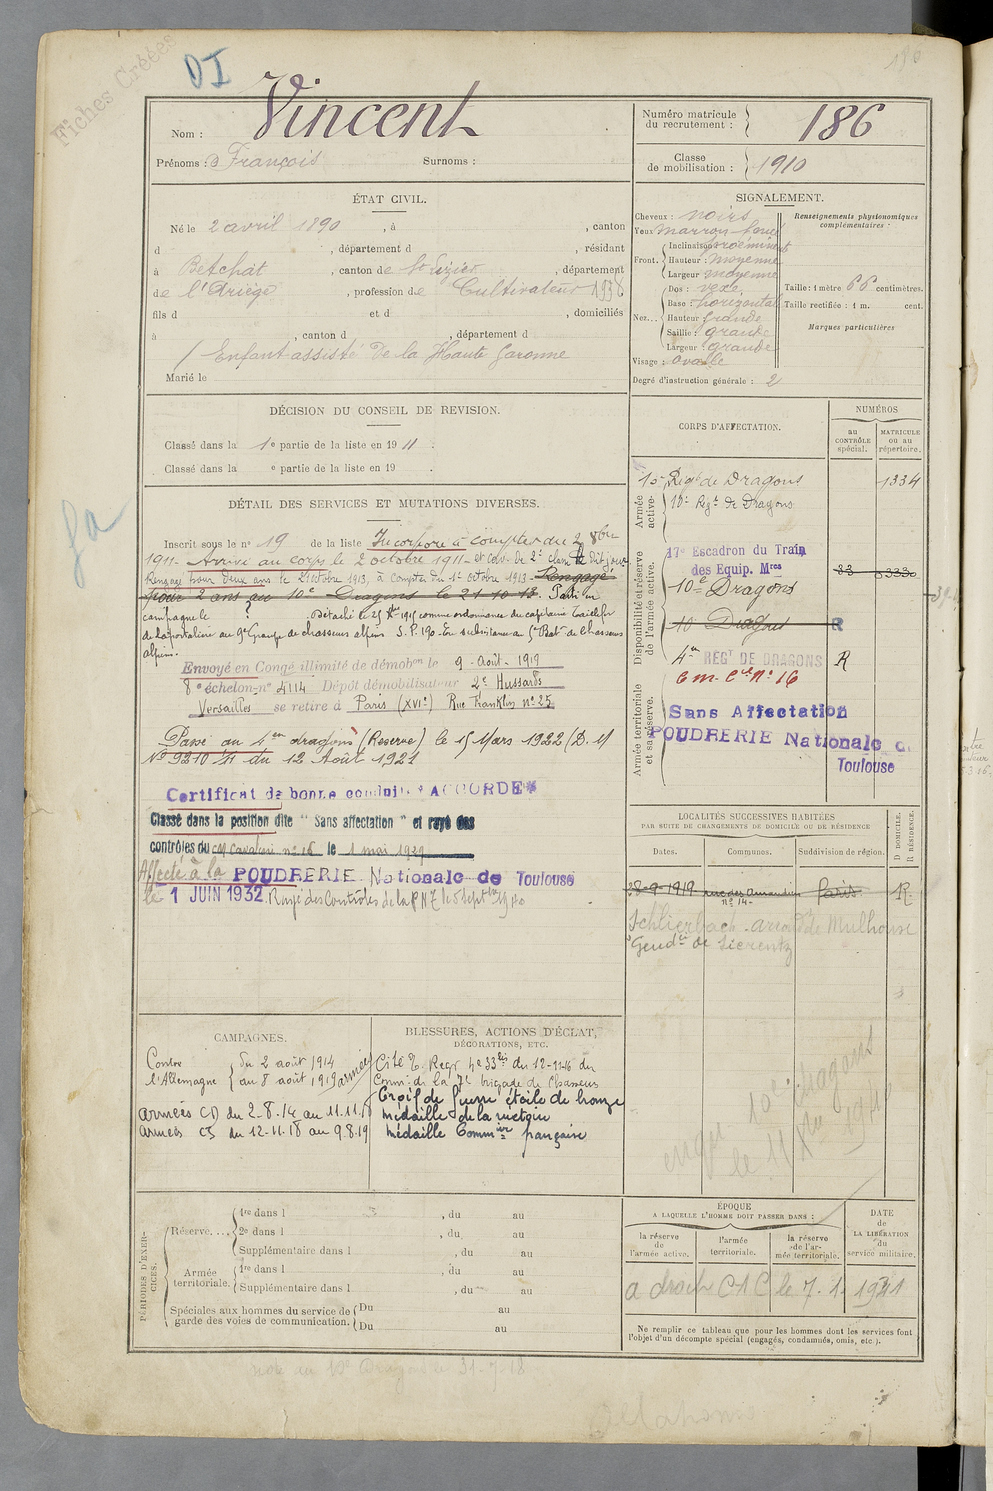 Fiches Créées
DI
180
Nom : Vincent
Prénoms : François Surnoms :
Numéro matricule du recrutement : 186
Classe de mobilisation : 1910
ÉTAT CIVIL.
Né le 2 avril 1890, à , canton
d , département d , résidant
à Betchat, canton de St Lizier, département
de l'Ariège, profession de Cultivateur 1938
fils d et d , domiciliés
à , canton d , département d
Enfant assisté de la Haute Garonne
Marié le
SIGNALEMENT.
Cheveux : noirs
Yeux marron foncé
Front. Inclinaison proéminent
Hauteur : moyenne
Largeur moyenne
Nez... Dos : vexe
Base : horizontal
Hauteur grande
Saillie : grande
Largeur : grande
Visage : ovale
Degré d'instruction générale : 2
Renseignements physionomiques complémentaires :
Taille : 1 mètre 66 centimètres.
Taille rectifiée : 1 m. cent.
Marques particulières
DÉCISION DU CONSEIL DE REVISION.
Classé dans la 1e partie de la liste en 1911.
Classé dans la e partie de la liste en 19 .
CORPS D'AFFECTATION.
NUMÉROS
au CONTRÔLE spécial.
MATRICULE ou au répertoire.
Armée active.
10e Régt de Dragons 1334
10e Regt de Dragons
Disponibilité et réserve de l'armée active.
17e Escadron du Train
des Equip. Mres 83 8330
10e Dragons
10 Dragons R
4em RÉGT DE DRAGONS R
C m. C el No 16
Armée territoriale et sa réserve.
Sans Affectation
POUDRERIE Nationale de
Toulouse
DÉTAIL DES SERVICES ET MUTATIONS DIVERSES.
Inscrit sous le no 19 de la liste Incorporé à compter du 2 8bre
1911. Arrivé au corps le 2 octobre 1911 et cav. de 2e classe le dit jour
Rengagé pour deux ans le 21 octobre 1913, à compter du 1er octobre 1913. Rengagé
pour 2 ans au 10e Dragons le 21-10-13. Parti en
campagne le ? Détaché le 25 1915 comme ordonnance du capitaine
de Laportalière au 9e Groupe de chasseurs alpins S.P. 190. En subsistance au 5e Bat. de Chasseurs
alpins.
Envoyé en Congé illimité de démobon le 9 Août 1919
8e échelon no 4114 Dépôt démobilisateur 2e Hussards
Versailles se retire à Paris (XVIe) Rue Franklin no 25
Passé au 4em dragons (Réserve) le 15 Mars 1922 (D. M
No 9210 du 12 Août 1921
Certificat de bonne conduite ACCORDÉ
Classé dans la position dite " Sans affectation " et rayé des
contrôles du cm Cavalerie no 16 le 1 mai 1929
Affecté à la POUDRERIE Nationale de Toulouse
le 1 JUIN 1932. Rayé des Contrôles de la P N T le 5 Septbre 1940
LOCALITÉS SUCCESSIVES HABITÉES
PAR SUITE DE CHANGEMENTS DE DOMICILE OU DE RÉSIDENCE
D DOMICILE. R RÉSIDENCE.
Dates. Communes. Suddivision de région.
28-9-1919 rue des Amandiers no 14 Paris R
Schlierbach - arrondt de Mulhouse
Gendie de Sierentz
CAMPAGNES.
Contre l'Allemagne du 2 août 1914
au 8 août 1919 armées
armées CD du 2-8-14 au 11.11.18
armées CS du 12-11.18 au 9.8.19
BLESSURES, ACTIONS D'ÉCLAT,
DÉCORATIONS, ETC.
Cité O. Regt No 33bis du 12-11-16 du
Commt de la 7e brigade de Chasseurs
Croix de Guerre étoile de bronze
Médaille de la victoire
Médaille Commive française
10e Dragons
le 11 Xbre 1940
PÉRIODES D'EXERCICES.
Réserve... 1re dans l , du au
2e dans l , du au
Supplémentaire dans l , du au
Armée territoriale. 1re dans l , du au
Supplémentaire dans l , du au
Spéciales aux hommes du service de garde des voies de communication. Du au
Du au
ÉPOQUE
A LAQUELLE L'HOMME DOIT PASSER DANS :
la réserve de l'armée active.
l'armée territoriale.
la réserve de l'armée territoriale.
DATE de LA LIBÉRATION du service militaire.
a droit C1C le 7. 1. 1941
Ne remplir ce tableau que pour les hommes dont les services font
l'objet d'un décompte spécial (engagés, condamnés, omis, etc.).